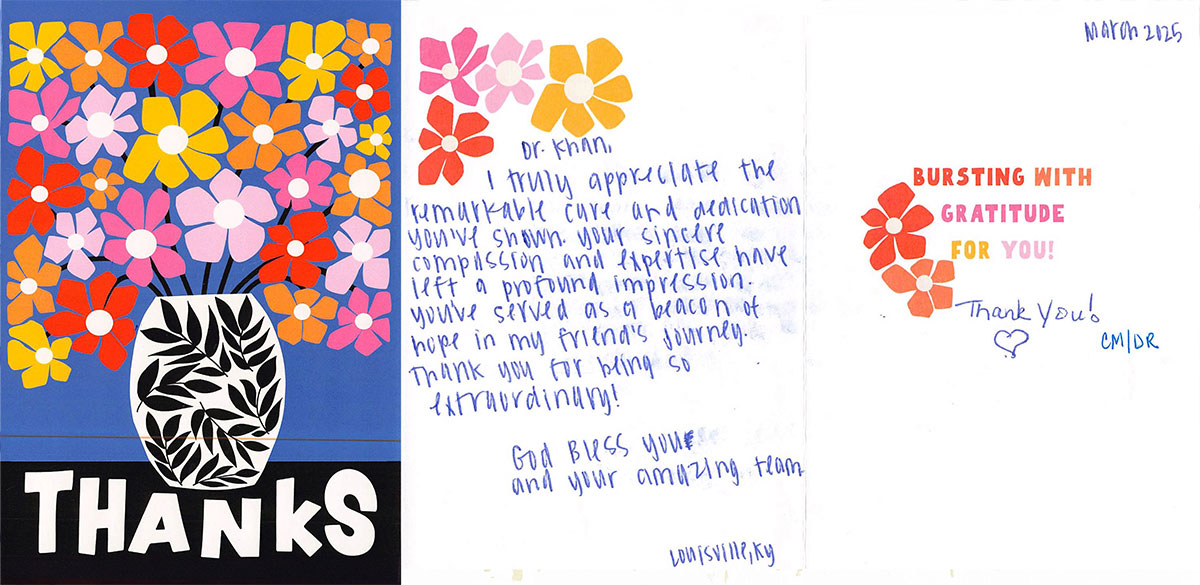 THANKS
Dr. Khan,
I truly appreciate the
remarkable care and dedication
you've shown. Your sincere
compassion and expertise have
left a profound impression.
You've served as a beacon of
hope in my friend's journey.
Thank you for being so
extraordinary!
God Bless you
and your amazing team
Louisville, Ky
March 2025
BURSTING WITH
GRATITUDE
FOR YOU!
Thank You!
CM/DR